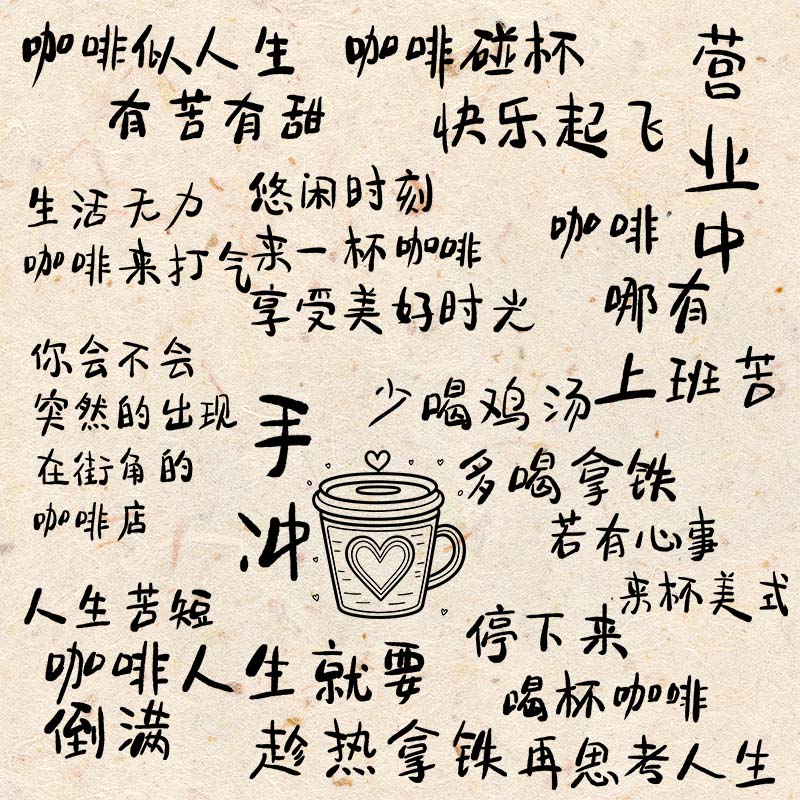 咖啡似人生
有苦有甜
咖啡碰杯
快乐起飞
营业中
生活无力
咖啡来打气
悠闲时刻
来一杯咖啡
享受美好时光
咖啡
哪有
上班苦
你会不会
突然的出现
在街角的
咖啡店
手冲
少喝鸡汤
多喝拿铁
若有心事
来杯美式
人生苦短
咖啡人生就要
倒满
停下来
喝杯咖啡
趁热拿铁再思考人生